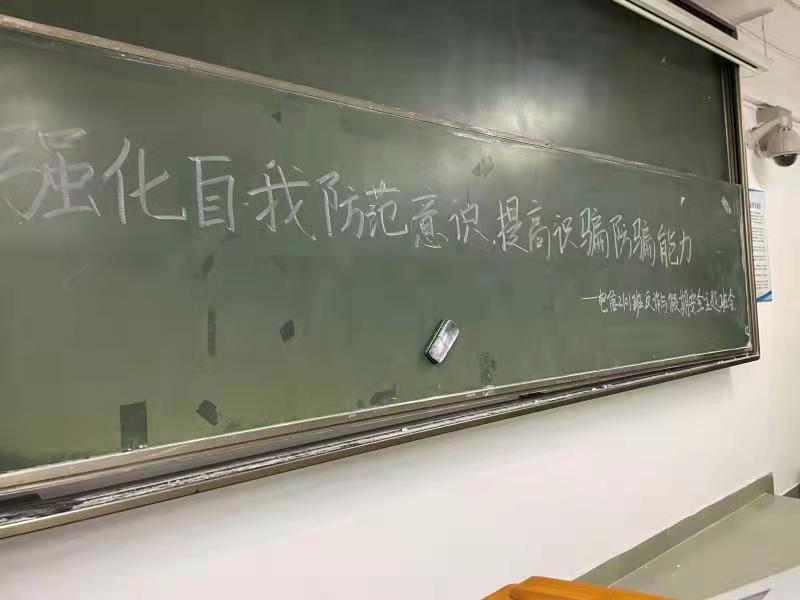 强化自我防范意识,提高识骗防骗能力
——电信2101班反诈与假期安全主题班会